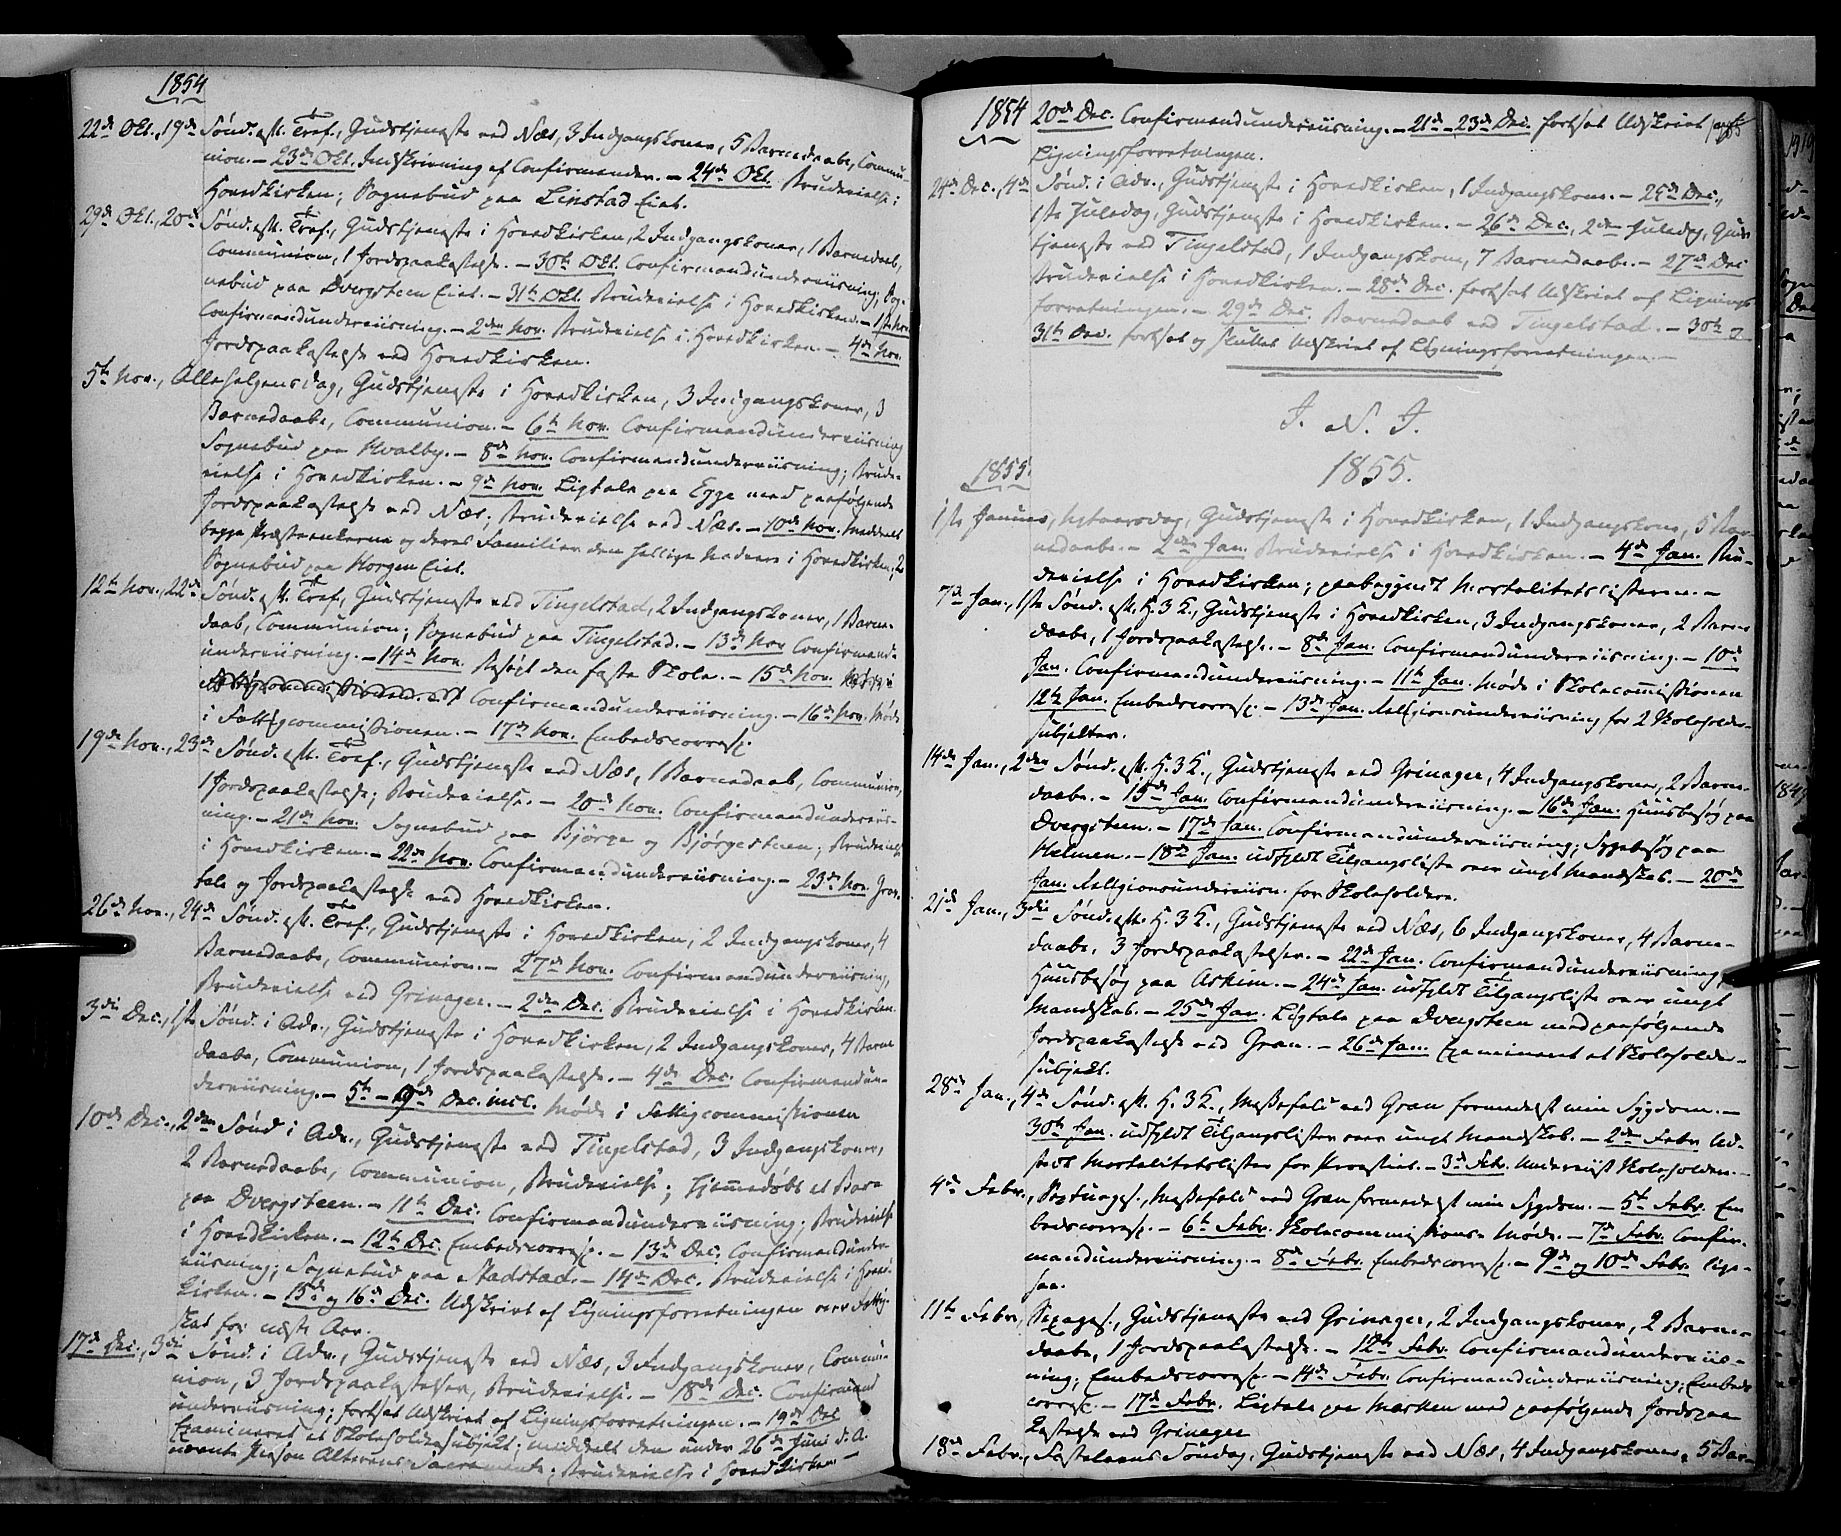 1854
22de Okt., 19de Sønd. eft. Tref., Gudstjeneste ved Næs, 3 Indgangskoner, 5 Barnedaabe, Commu-
nion. – 23de Okt. Indskrivning af Confirmander. – 24de Okt. Brudevielse i
Hovedkirken; Sognebud paa Linstad Eiet.
29de Okt., 20de Sønd. eft. Tref., Gudstjeneste i Hovedkirken, 2 Indgangskoner, 1 Barnedaab,
Communion, 1 Jordspaakastelse. – 30te Okt. Confirmandunderviisning; Sog-
nebud paa Dvergsteen Eiet. – 31te Okt. Brudevielse i Hovedkirken. – 1ste Nov.
Confirmandunderviisning. – 2den Nov. Brudevielse i Hovedkirken. – 4de Nov.
Jordspaakastelse ved Hovedkirken.
5te Nov., Allehelgensdag, Gudstjeneste i Hovedkirken, 3 Indgangskoner, 3
Barnedaabe, Communion. – 6te Nov. Confirmandunderviisning
Sognebud paa Hvalby. – 8de Nov. Confirmandunderviisning; Brude-
vielse i Hovedkirken. – 9de Nov. Ligtale paa Egge med paafølgende
Jordspaakastelse ved Næs; Brudevielse ved Næs. – 10de Nov. Meddeelt
begge Præsteenkerne og deres Familier den hellige Nadvere i Hovedkirken; 2
Sognebud paa Horgen Eiet.
12te Nov., 22de Sønd. eft. Tref., Gudstjeneste ved Tingelstad, 2 Indgangskoner, 1 Barne-
daab, Communion; Sognebud paa Tingelstad. – 13de Nov. Confirmand-
underviisning. – 14de Nov. Besøgt den faste Skole. – 15de Nov.
Confirmandunderviisning. – 16de Nov. Møde
i Fattigcommissionen. – 17de Nov. Embedscorresp.
19de Nov., 23de Sønd. eft. Tref., Gudstjeneste ved Næs, 1 Barnedaab, Communion,
1 Jordspaakastelse; Brudevielse. – 20de Nov. Confirmandunderviis-
ning. – 21de Nov. Sognebud paa Bjørge og Bjørgesteen; Brudevielse
i Hovedkirken. – 22de Nov. Confirmandunderviisning. – 23de Nov. Grav-
tale og Jordspaakastelse ved Hovedkirken.
26de Nov., 24de Sønd. eft. Tref., Gudstjeneste i Hovedkirken, 2 Indgangskoner, 4
Barnedaabe, Communion. – 27de Nov. Confirmandunderviisning,
Brudevielse ved Grinager. – 2den Dec. Brudevielse i Hovedkirken.
3die Dec., 1ste Sønd. i Adv., Gudstjeneste i Hovedkirken, 2 Indgangskoner, 4 Barne-
daabe, Communion, 1 Jordspaakastelse. – 4de Dec. Confirmandun-
derviisning. – 5te – 9de Dec. incl. Møde i Fattigcommissionen
10de Dec., 2den Sønd. i Adv., Gudstjeneste ved Tingelstad, 3 Indgangskoner,
2 Barnedaabe, Communion, Brudevielse; hjemmedøbt et Barn
paa Dvergsteen. – 11te Dec. Confirmandunderviisning; Brudevielse
i Hovedkirken. – 12te Dec. Embedscorresp. – 13de Dec. Confirmandunder-
viisning; Sognebud paa Stadstad. – 14de Dec. Brudevielse i Hoved-
kirken. – 15de og 16de Dec. Udskrivt af Ligningsforretningen over Fattig-
skat for næste Aar.
17de Dec., 3die Sønd. i Adv., Gudstjeneste ved Næs, 3 Indgangskoner, Commu-
nion, 3 Jordspaakastelser, Brudevielse. – 18de Dec. Confirmand
underviisning; fortsat Udskrivt af Ligningsforretningen. – 19de Dec.
Examineret et Skoleholdersubjekt; meddeelt den under 26de Juni d. A.
nævnte Person Alterens Sacramente; Brudevielse i Hovedkirken –
1854 20de Dec. Confirmandunderviisning. – 21de – 23de Dec. fortsat Udskrivt af
Ligningsforretningen.
24de Dec., 4de Sønd. i Adv., Gudstjeneste i Hovedkirken, 1 Indgangskone. – 25de Dec.,
1ste Juledag, Gudstjeneste i Hovedkirken. – 26de Dec., 2den Juledag, Guds-
tjeneste ved Tingelstad, 1 Indgangskone, 7 Barnedaabe. – 27de Dec
Brudevielse i Hovedkirken. – 28de Dec. fortsat Udskrivt af Lignings-
forretningen. – 29de Dec. Barnedaab ved Tingelstad. – 30te og
31te Dec. fortsat og sluttet Udskrivt af Ligningsforretningen. –
J. N. J.
1855.
1855.
1ste Januar, Nytaarsdag, Gudstjeneste i Hovedkirken, 1 Indgangskone, 5 Bar-
nedaabe. – 2den Jan. Brudevielse i Hovedkirken. – 4de Jan. Bru-
devielse i Hovedkirken; paabegyndt Mortalitetslisterne. –
7de Jan., 1ste Sønd. eft. H. 3 K., Gudstjeneste i Hovedkirken, 3 Indgangskoner, 2 Barne-
daabe, 1 Jordspaakastelse. – 8de Jan. Confirmandunderviisning. – 10de
Jan. Confirmandunderviisning. – 11te Jan. Møde i Skolecommissionen
12te Jan. Embedscorresp. – 13de Jan. Religionsunderviisning for 2 Skoleholder-
subjekter.
14de Jan., 2den Sønd. eft. H. 3 K., Gudstjeneste ved Grinager, 4 Indgangskoner, 2 Barne-
daabe. – 15de Jan. Confirmandunderviisning. – 16de Jan. Huusbesøg paa
Dvergsteen. – 17de Jan. Confirmandunderviisning; Sygebesøg paa
Helmen. – 18de Jan. udfyldt Tilgangsliste over ungt Mandskab. – 20de
Jan. Religionsunderviisn. for Skoleholdere.
21de Jan., 3die Sønd. eft. H. 3 K., Gudstjeneste ved Næs, 6 Indgangskoner, 4 Barne-
daabe, 3 Jordspaakastelser. – 22de Jan. Confirmandunderviisning,
Huusbesøg paa Askim. – 24de Jan. udfyldt Tilgangsliste over ungt
Mandskab. – 25de Jan. Ligtale paa Dvergsteen med paafølgende
Jordspaakastelse ved Gran. – 26de Jan. Examineret et Skoleholder-
subjekt.
28de Jan., 4de Sønd. eft. H. 3 K., Messefald ved Gran formedelst min Sygdom. –
30te Jan. udfyldt Tilgangslister over ungt Mandskab. – 2den Febr. Ud-
stedt Mortalitetslister for Provstiet. – 3die Febr. Underviist Skoleholdere. –
4de Febr., Septuages., Messefald ved Gran formedelst min Sygdom. – 5te Febr. Em
bedscorresp. – 6te Febr. Skolecommissions-Møde. – 7de Febr. Confir-
mandunderviisning. – 8de Febr. Embedscorresp. – 9de og 10de Febr. lige-
saa.
11te Febr., Sexages., Gudstjeneste ved Grinager, 2 Indgangskoner, 2 Barne-
daabe, 1 Jordspaakastelse. – 12te Febr. Confirmandunderviis-
ning; Embedscorresp. – 14de Febr. Confirmandunderviisning; Embeds
corresp. – 17de Febr. Ligtale paa Morken med paafølgende Jordspaa
kastelse ved Grinager
18de Febr., Fastelavns Søndag, Gudstjeneste ved Næs, 4 Indgangskoner, 5 Bar-